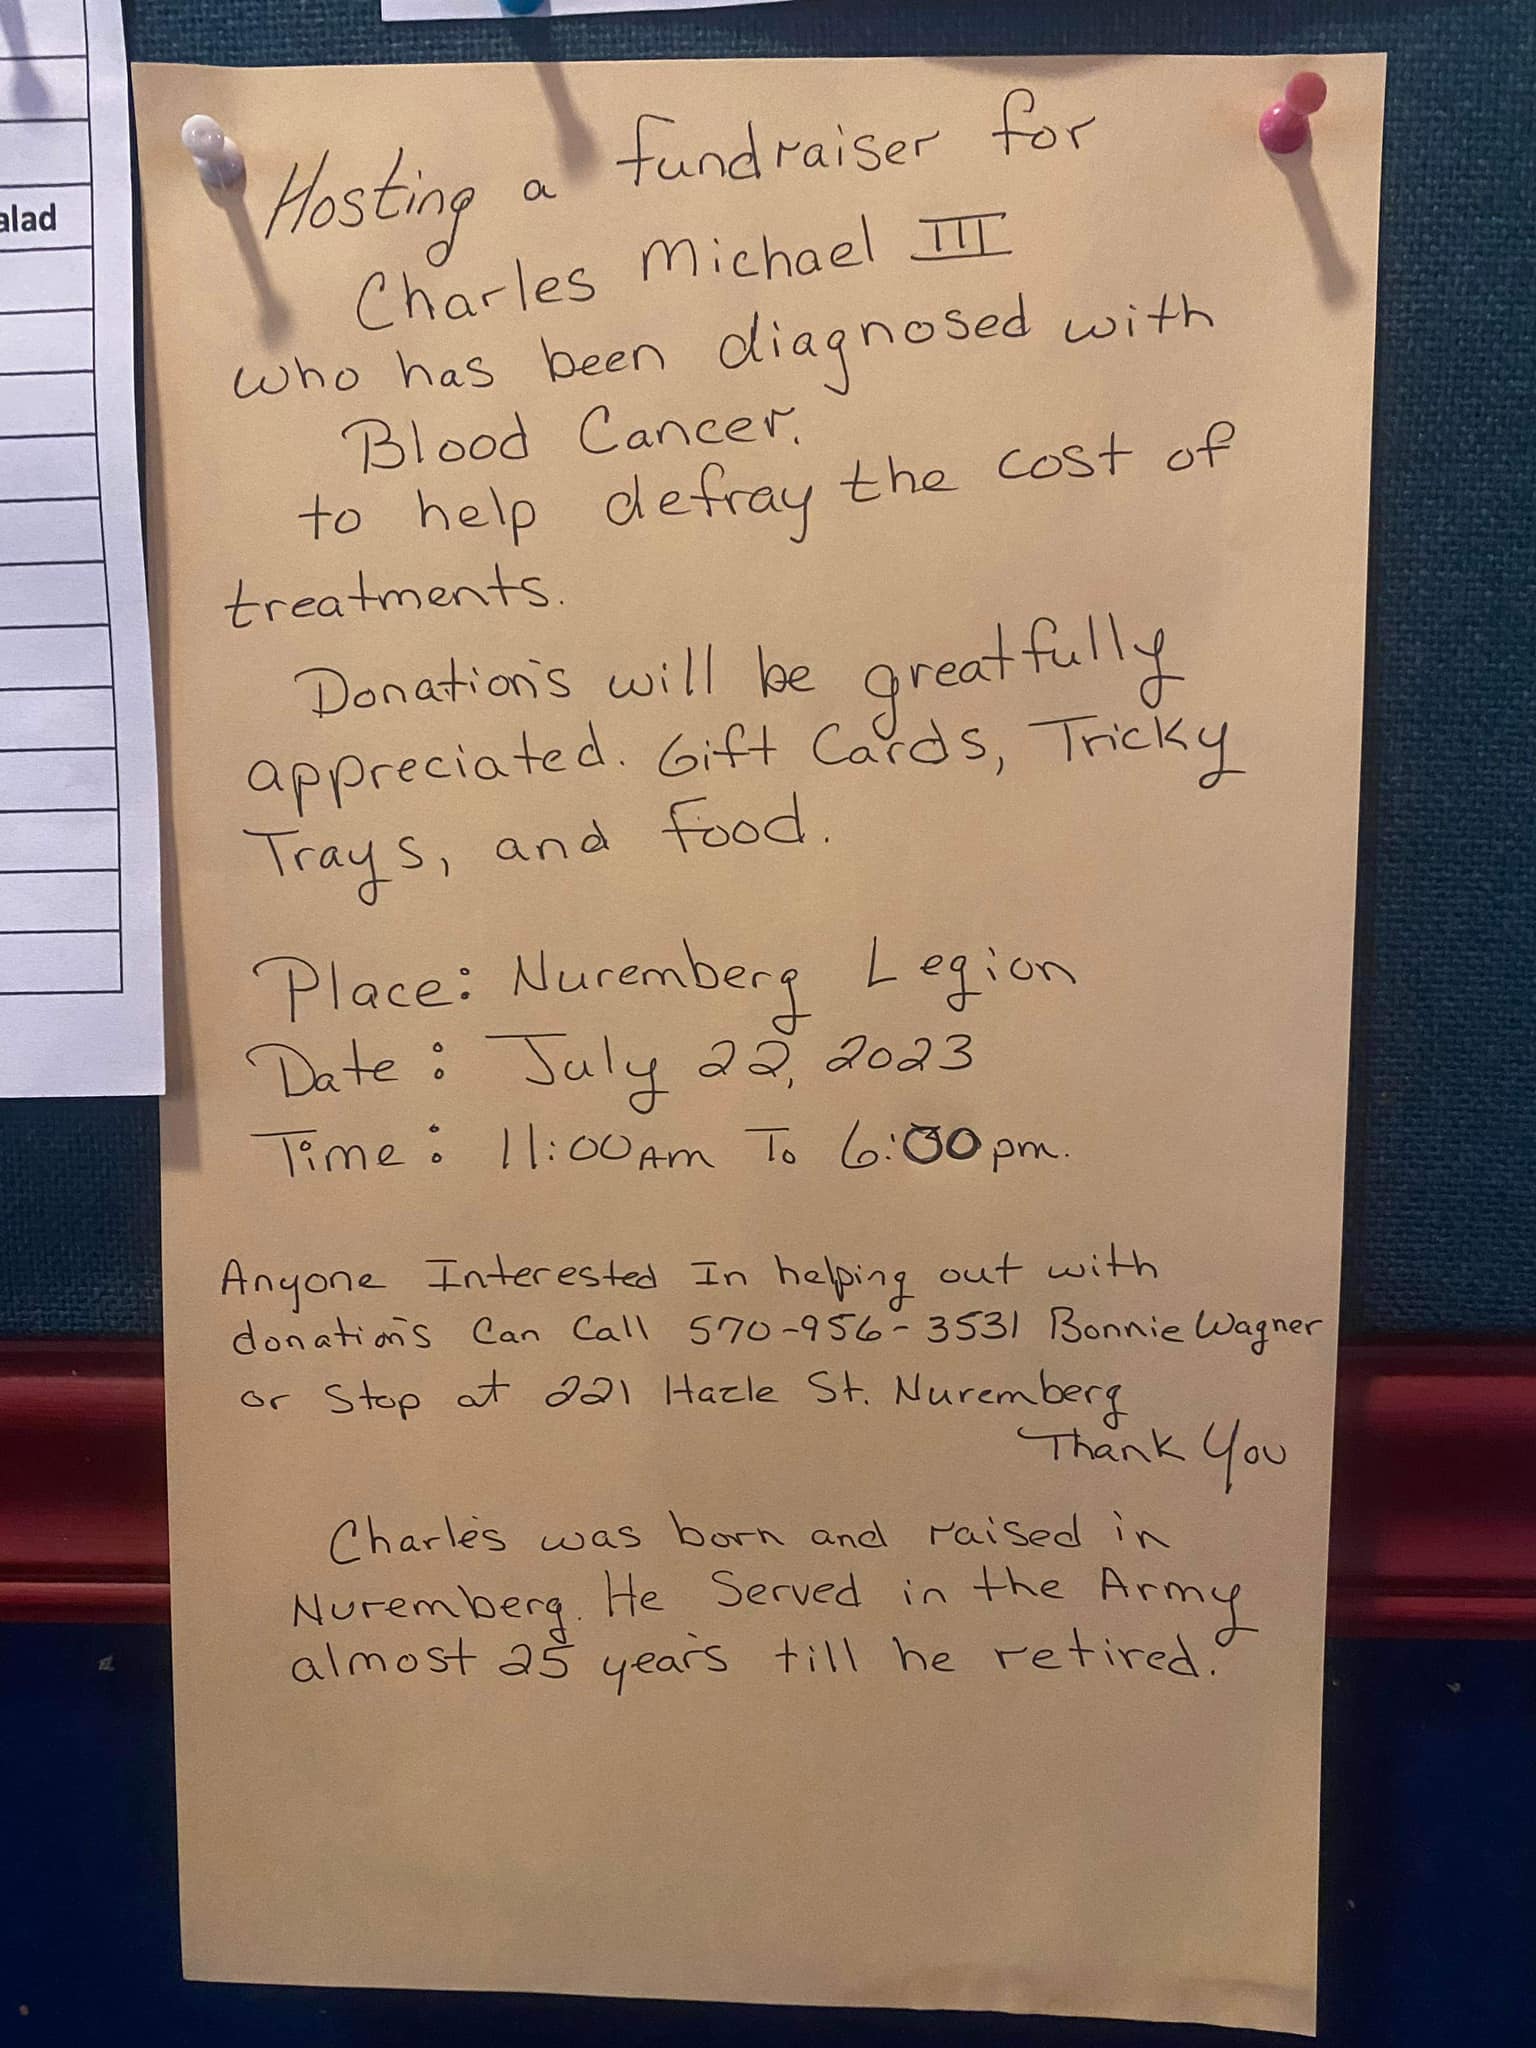 alad
Hosting a fundraiser for
Charles Michael III
who has been diagnosed with
Blood Cancer.
to help defray the cost of
treatments.
Donation's will be greatfully
appreciated. Gift Cards, Tricky
Trays, and food.
Place: Nuremberg Legion
Date: July 22, 2023
Time: 11:00 AM To 6:00 pm.
Anyone Interested In helping out with
donation's Can Call 570-956-3531 Bonnie Wagner
or Stop at 221 Hazle St. Nuremberg
Thank You
Charle's was born and raised in
Nuremberg. He Served in the Army
almost 25 year's till he retired.